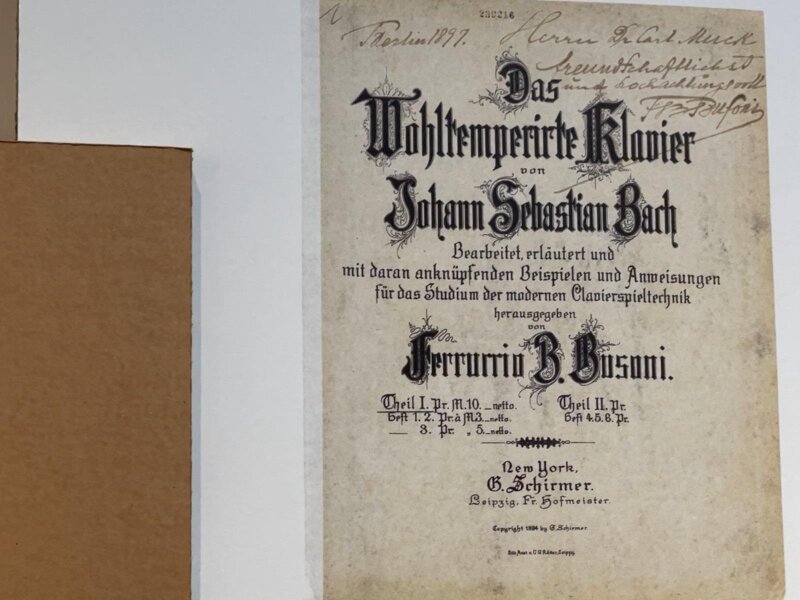 239216
Berlin 1897. Herrn Dr Carl Muck
freundschaftlichst
und hochachtungsvoll
Das
Wohltemperirte Klavier
von
Johann Sebastian Bach
Bearbeitet, erläutert und
mit daran anknüpfenden Beispielen und Anweisungen
für das Studium der modernen Clavierspieltechnik
herausgegeben
von
Ferruccio B. Busoni.
Theil I. Pr. M. 10._netto. Theil II. Pr.
Heft 1. 2. Pr. à M 3._netto. Heft 4. 5. 6. Pr.
3. Pr. „ 5._netto.
New York,
G. Schirmer.
Leipzig, Fr. Hofmeister.
Copyright 1894 by G. Schirmer.
Lith. Anst. v. C. G. Röder, Leipzig.